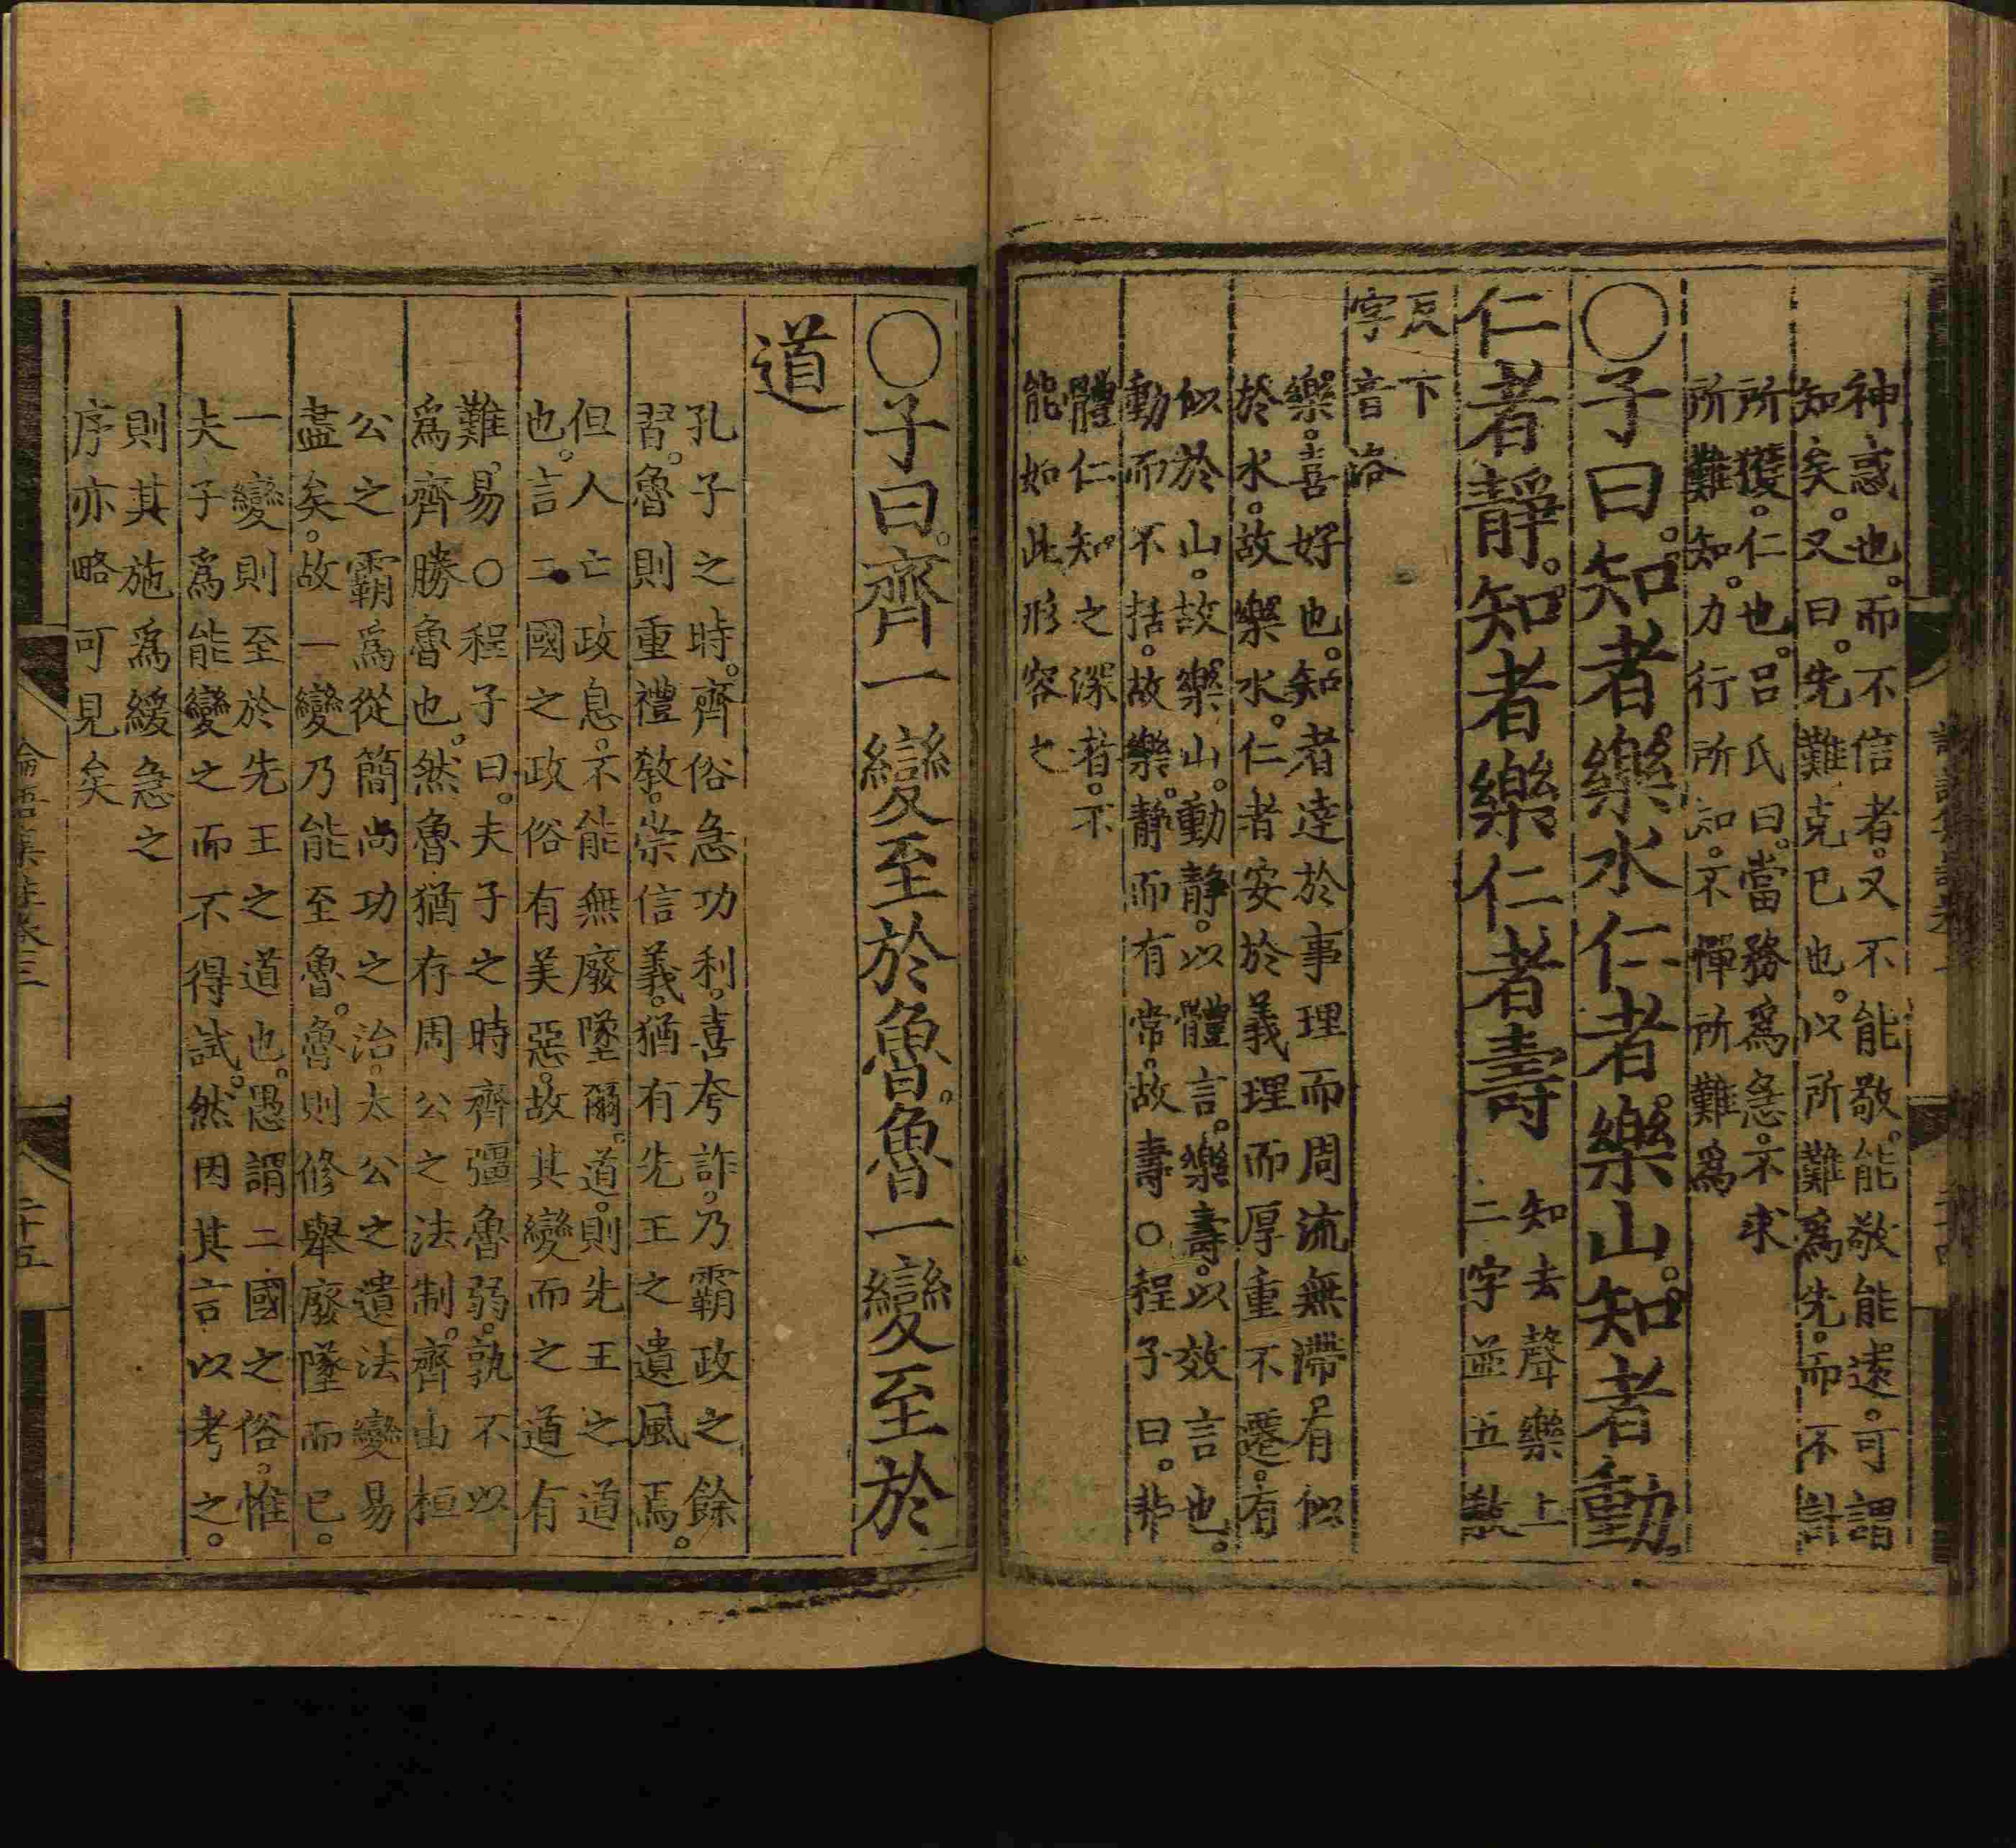 神惑也。而不信者。又不能敬。能敬能遠。可謂
知矣。又曰。先難克己也。以所難爲先。而不計
所獲。仁也。呂氏曰。當務爲急。不求
所難知。力行所知。不憚所難爲
〇子曰。知者樂水仁者樂山。知者動。
仁者靜。知者樂仁者壽
知去聲樂上
二字並五敎
反下
字音洛
樂。喜好也。知者達於事理而周流無滯。有似
於水。故樂水。仁者安於義理而厚重不遷。有
似於山。故樂山。動靜。以體言。樂壽。以效言也。
動而不括。故樂。靜而有常。故壽〇程子曰。非
體仁知之深者。不
能如此形容之
〇子曰。齊一變至於魯。魯一變至於
道
孔子之時。齊俗急功利。喜夸詐。乃霸政之餘
習。魯則重禮敎。崇信義。猶有先王之遺風焉。
但人亡政息。不能無廢墜爾。道。則先王之道
也。言二國之政俗有美惡。故其變而之道有
難易〇程子曰。夫子之時齊彊魯弱。孰不以
爲齊勝魯也。然魯猶存周公之法制。齊由桓
公之霸爲從簡尚功之治。太公之遺法變易
盡矣。故一變乃能至魯。魯則修舉廢墜而已。
一變則至於先王之道也。愚謂二國之俗。惟
夫子爲能變之而不得試。然因其言以考之。
則其施爲緩急之
序亦略可見矣
論語集註卷三
二十五